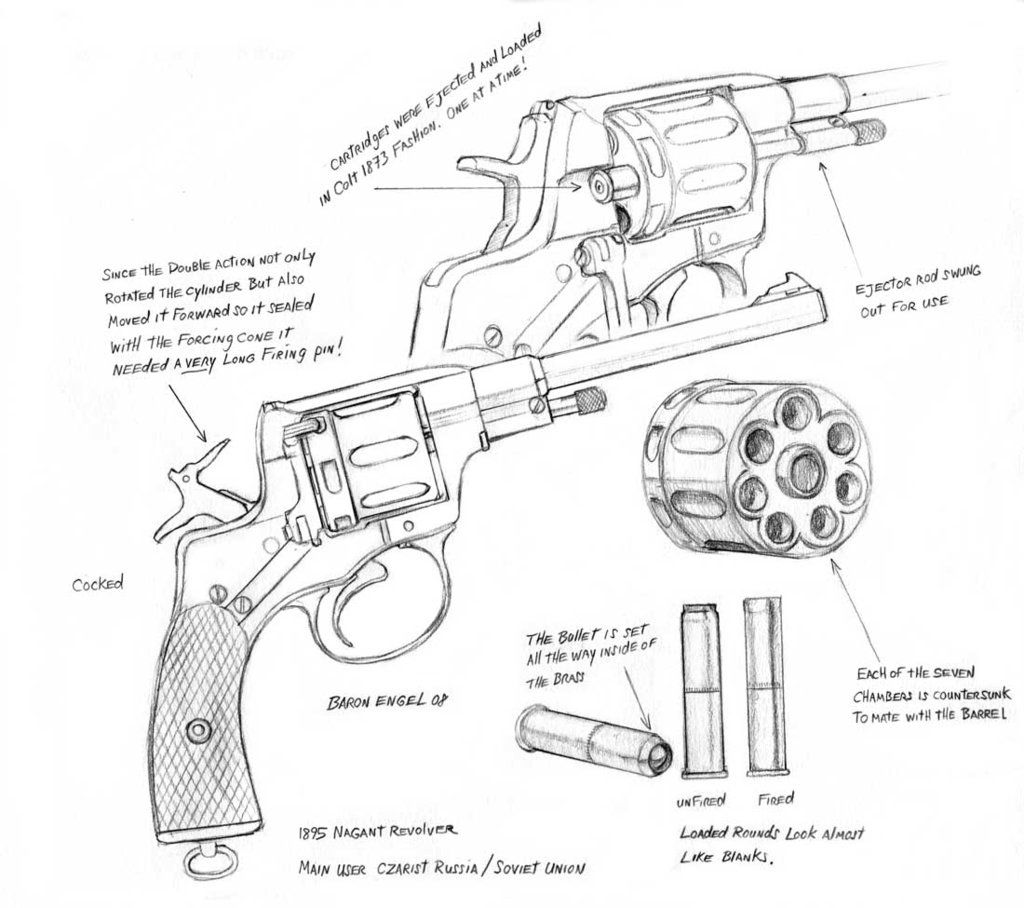 CARTRIDGES WERE EJECTED AND LOADED
IN COLT 1873 FASHION. ONE AT A TIME!
SINCE THE DOUBLE ACTION NOT ONLY
ROTATED THE CYLINDER BUT ALSO
MOVED IT FORWARD SO IT SEALED
WITH THE FORCING CONE IT
NEEDED A VERY LONG FIRING PIN!
EJECTOR ROD SWUNG
OUT FOR USE
COCKED
THE BULLET IS SET
ALL THE WAY INSIDE OF
THE BRASS
EACH OF THE SEVEN
CHAMBERS IS COUNTERSUNK
TO MATE WITH THE BARREL
BARON ENGEL 08
UNFIRED
FIRED
1895 NAGANT REVOLVER
MAIN USER CZARIST RUSSIA/SOVIET UNION
LOADED ROUNDS LOOK ALMOST
LIKE BLANKS.